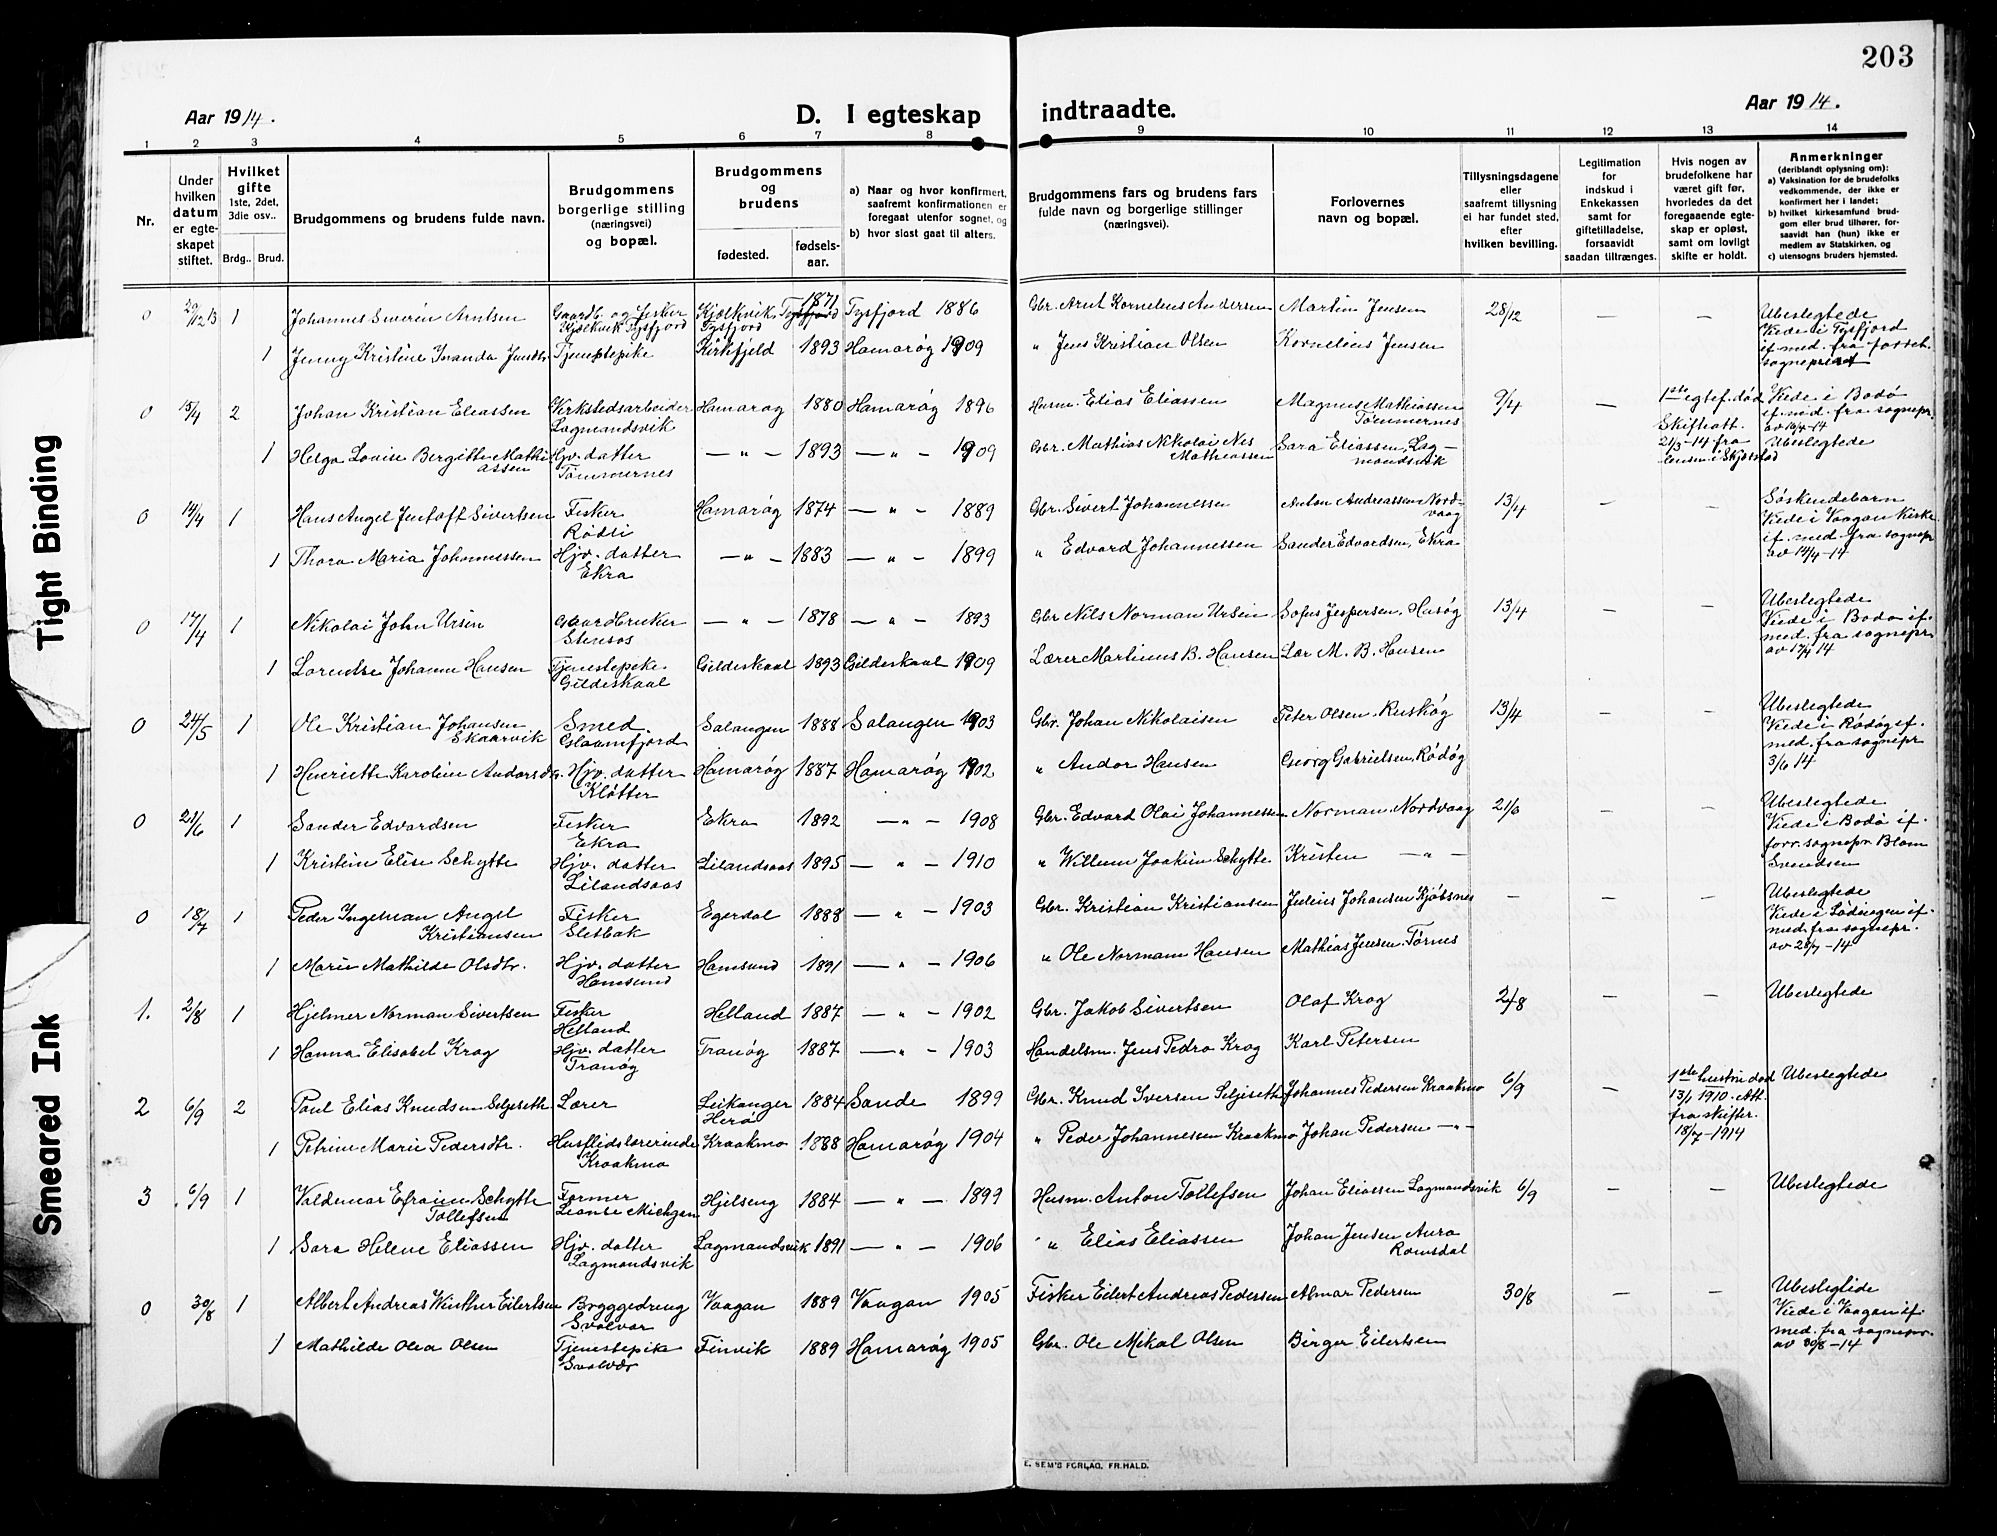 203
Aar 1914.
D. I egteskap indtraadte.
Aar 1914.
1 2 3 4 5 6 7 8 9 10 11 12 13 14
Nr.
Under hvilken datum er egteskapet stiftet.
Hvilket gifte 1ste, 2det, 3die osv..
Brdg.. Brud.
Brudgommens og brudens fulde navn.
Brudgommens borgerlige stilling (næringsvei) og bopæl.
Brudgommens og brudens
fødested.
fødsels-aar.
a) Naar og hvor konfirmert, saafremt konfirmationen er foregaat utenfor sognet, og
b) hvor sidst gaat til alters.
Brudgommens fars og brudens fars fulde navn og borgerlige stillinger (næringsvei).
Forlovernes navn og bopæl.
Tillysningsdagene eller saafremt tillysning ei har fundet sted, efter hvilken bevilling.
Legitimation for indskud i Enkekassen samt for giftetilladelse, forsaavidt saadan tiltrænges.
Hvis nogen av brudefolkene har været gift før, hvorledes da det foregaaende egteskap er opløst, samt om lovligt skifte er holdt.
Anmerkninger (deriblandt oplysning om):
a) Vaksination for de brudefolks vedkommende, der ikke er konfirmert her i landet;
b) hvilket kirkesamfund brudgom eller brud tilhører, forsaavidt han (hun) ikke er medlem av Statskirken, og
c) utensogns bruders hjemsted.
0 29/12 13 1 Johannes Severin Arntsen Gaardb. og Fisker Kjølkvik, Tysfjord Kjølkvik, Tysfjord 1871 Tysfjord 1886 Gbr. Arnt Kornelius Andersen Martin Jensen 28/12 — — Ubeslegtede Viede i Tysfjord if. med. fra
1 Jenny Kristine Jensdtr. Tjenestepike Kirkfjeld 1893 Hamarøy 1909 " Jens Kristian Olsen Kornelius Jensen
0 15/4 2 Johan Kristian Eliassen Verkstedsarbeider Lagmandsvik Hamarøy 1880 Hamarøy 1896 Husm. Elias Eliassen Magnus Mathiassen Tømmernes 9/4 — 1ste egtef. død Skifteatt. 21/3-14 fra lensm. i Skjerstad Viede i Bodø if. med. fra sognepr.
1 Helga Lovise Bergitte Mathiassen Hjv. datter Tømmernes — " — 1893 — " — 1909 Gbr. Mathias Nikolai Nis Mathiassen Sara Eliassen, Lagmandsvik Ubeslegtede
0 14/4 1 Hans Angel Jentoft Sivertsen Fisker Rødli Hamarøy 1874 — " — 1889 Gbr. Sivert Johannessen Anton Andreassen Nordvaag 13/4 — — Søskendebarn Viede i Vaagan Kirke if. med fra sognepr. av 14/4-14
1 Thora Maria Johannessen Hjv. datter Ekra — " — 1883 — " — 1899 " Edvard Johannessen Sander Edvardsen, Ekra
0 17/4 1 Nikolai John Ursin Gaardbruker Stensos — " — 1878 — " — 1893 Gbr Nils Norman Ursin Sofus Jespersen, Husøy 13/4 — — Ubeslegtede Viede i Bodø if. med. fra sognepr. av 17/4 14
1 Lorentse Johanne Hansen Tjenestepike Gildeskaal Gildeskaal 1893 Gildeskaal 1909 Lærer Martinus B. Hansen Lær M. B. Hansen
0 24/5 1 Ole Kristian Johansen Skaarvik Smed. Glaamfjord Salangen 1888 Salangen 1903 Gbr. Johan Nikolaisen Peter Olsen, Ruskøy 13/4 — — Ubeslegtede Viede i Rødøy if. med. fra sognepr 3/6 14
1 Henriette Karoline Andorsdtr. Hjv. datter Kløtter Hamarøy 1887 Hamarøy 1902 " Andor Hansen Georg Gabrielsen, Rødøy
0 21/6 1 Sander Edvardsen Fisker Ekra Ekra 1892 — " — 1908 Gbr. Edvard Olai Johannessen Norman, Nordvaag 21/6 — — Ubeslegtede Viede i Bodø if. forr. sognepr. Blom Svendsen
1 Kristine Elise Schytte Hjv. datter Lilandsaas Lilandsaas 1895 — " — 1910 " Willum Joakim Schytte Kristen — " —
0 18/7 1 Peder Ingeman Angel Kristiansen Fisker Sletbak Egerdal 1888 — " — 1903 Gbr. Kristian Kristiansen Julius Johansen Kjøbsnes — — — Ubeslegtede Viede i Lødingen if. med. fra sognepr. av 28/7-14
1 Marie Mathilde Olsdtr. Hjv. datter Hamsund Hamsund 1891 — " — 1906 " Ole Normann Hansen Mathias Jensen, Tørnes
1. 2/8 1 Hjelmer Norman Sivertsen Fisker Helland Helland 1887 — " — 1902 Gbr. Jakob Sivertsen Olaf Krog 2/8 — — Ubeslegtede
1 Hanna Elisabet Krog Hjv. datter Tranøy Tranøy 1887 — " — 1903 Handelsm. Jens Pedro Krog Karl Petersen
2 6/9 2 Paul Elias Knudsen Seljeseth Lærer Leikanger Herø 1884 Sande 1899 Gbr. Knud Iversen Seljeseth Johannes Pedersen Kraakmo 6/9 — 1ste hustru død 13/1 1910. Att. fra skifter. 18/7-1914 Ubeslegtede
1 Petrine Marie Pedersdtr. Husflidslærerinde Kraakmo Kraakmo 1888 Hamarøy 1904 " Peder Johannessen Kraakmo Johan Pedersen — " —
3 6/9 1 Valdemar Efraim Schytte Tollefsen Farmer Michgan Hjelseng 1884 — " — 1899 Husm. Anton Tollefsen Johan Eliassen Lagmandsvik 6/9 — — Ubeslegtede
1 Sara Helene Eliassen Hjv. datter Lagmandsvik Lagmandsvik 1891 — " — 1906 " Elias Eliassen Johan Jensen Aura Romsdal
0 30/8 1 Albert Andreas Winther Eilertsen Bryggedreng Svolvær Vaagan 1889 Vaagan 1905 Fisker Eilert Andreas Pedersen Almar Pedersen 30/8 — — Ubeslegtede Viede i Vaagan if. med. fra sognepr. av 30/8-14
1 Mathilde Olea Olsen Tjenestepike Svolvær Finvik 1889 Hamarøy 1905 Gbr. Ole Mikal Olsen Birger Eilertsen
E. SEM'S FORLAG, FR.HALD.
Tight Binding
Smeared Ink